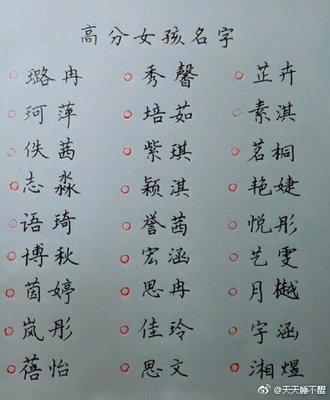 高分女孩名字
璐冉 秀馨 芷卉
珂萍 培茹 素淇
佚茜 紫琪 茗桐
志淼 颖淇 艳婕
语琦 誉茜 悦彤
博秋 宏涵 艺雯
茵婷 思冉 月樾
岚彤 佳玲 宇涵
蓓怡 思文 湘煜
@天天睡不醒